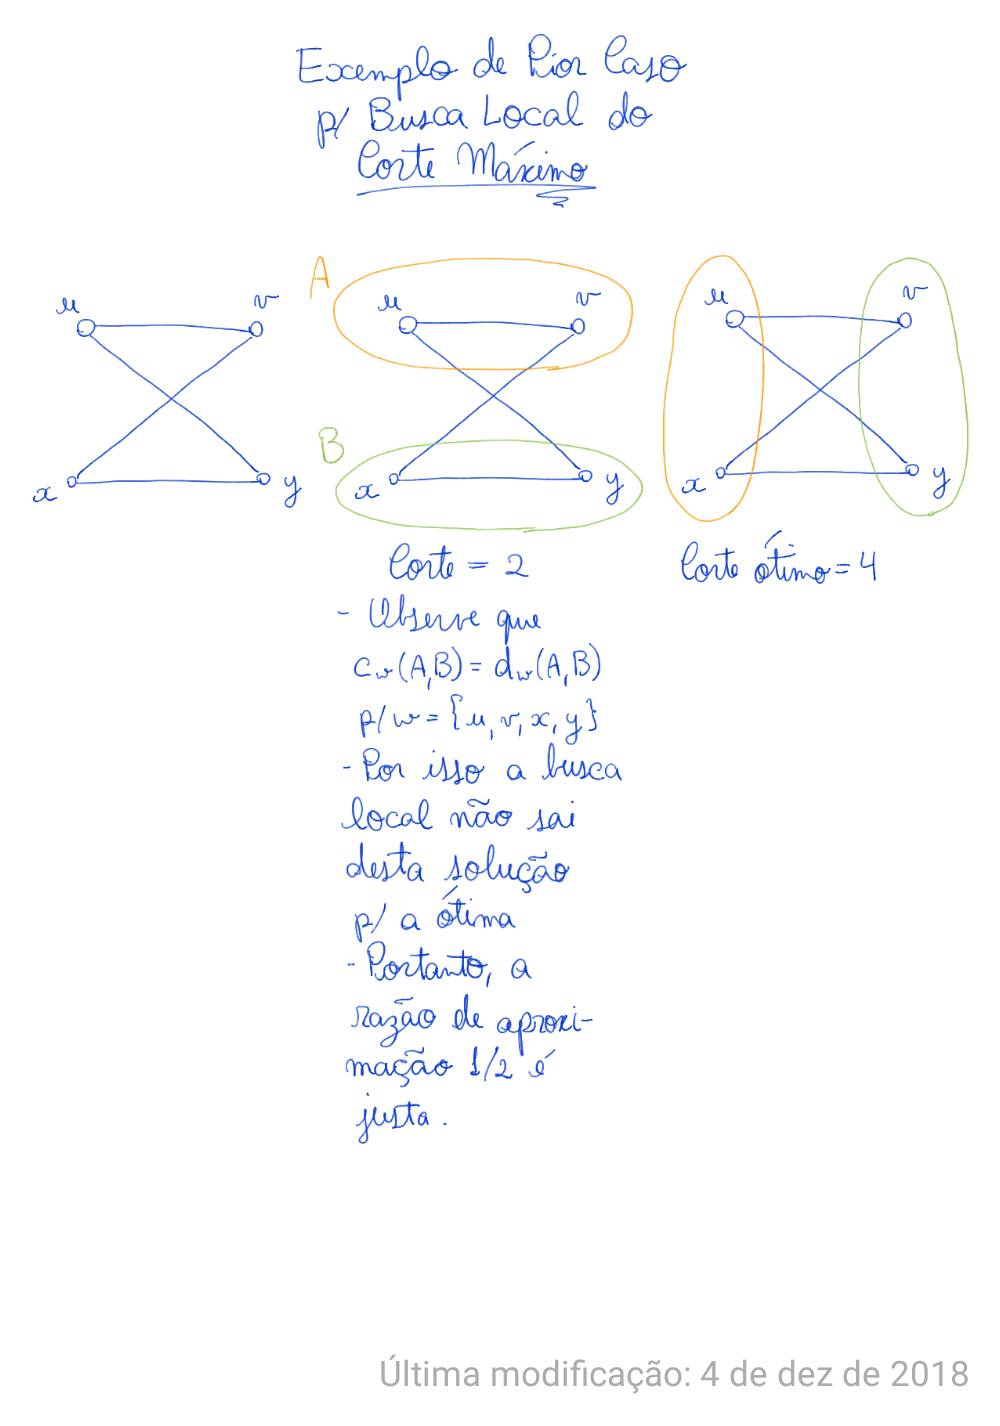 Exemplo de Pior Caso
p/ Busca Local do
Corte Máximo
u v
x y
A
u v
B
x y
u v
x y
Corte = 2
Corte ótimo = 4
- Observe que
c_w(A,B) = d_w(A,B)
p/ w = {u, v, x, y}
- Por isso a busca
local não sai
desta solução
p/ a ótima
- Portanto, a
razão de aproxi-
mação 1/2 é
justa.
Última modificação: 4 de dez de 2018